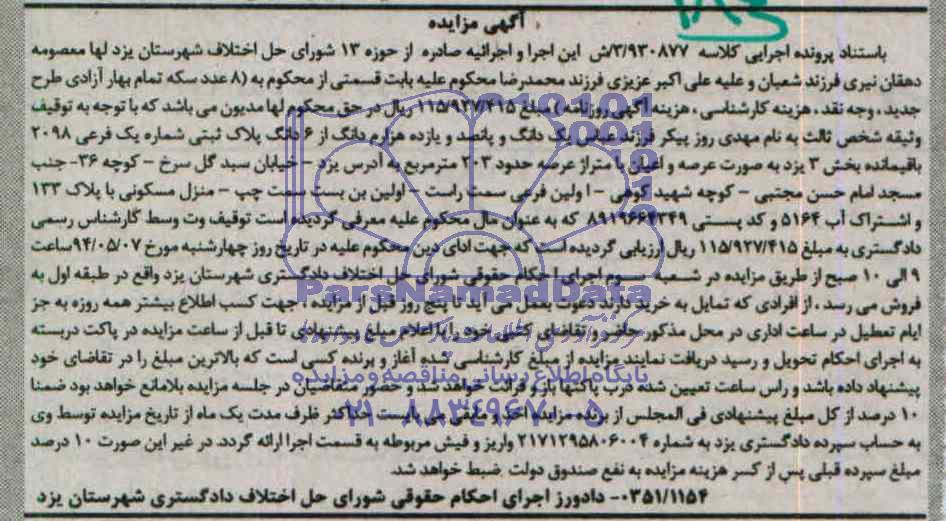 ۱۸۶
آگهی مزایده
باستناد پرونده اجرایی کلاسه ۳/۹۳۰۸۷۷/ش این اجرا و اجرائیه صادره از حوزه ۱۳ شورای حل اختلاف شهرستان یزد لها معصومه
دهقان نیری فرزند شعبان و علیه علی اکبر عزیزی فرزند محمدرضا محکوم علیه بابت قسمتی از محکوم به (۸ عدد سکه تمام بهار آزادی طرح
جدید، وجه نقد، هزینه کارشناسی، هزینه آگهی روزنامه) مبلغ ۱۱۵/۹۲۷/۴۱۵ ریال در حق محکوم لها مدیون می باشد که با توجه به توقیف
وثیقه شخص ثالث به نام مهدی روز پیکر فرزند عباس یک دانگ و پانصد و یازده هزارم دانگ از ۶ دانگ پلاک ثبتی شماره یک فرعی ۲۰۹۸
باقیمانده بخش ۳ یزد به صورت عرصه و اعیان با متراژ عرصه حدود ۲۰۳ مترمربع به آدرس یزد - خیابان سید گل سرخ - کوچه ۳۶- جنب
مسجد امام حسن مجتبی - کوچه شهید کوهی - اولین فرعی سمت راست - اولین بن بست سمت چپ - منزل مسکونی با پلاک ۱۳۳
و اشتراک آب ۵۱۶۴ و کد پستی ۸۹۱۹۶۶۴۳۴۹ که به عنوان مال محکوم علیه معرفی گردیده است توقیف وت وسط گارشناس رسمی
دادگستری به مبلغ ۱۱۵/۹۲۷/۴۱۵ ریال ارزیابی گردیده است که جهت ادای دین محکوم علیه در تاریخ روز چهارشنبه مورخ ۹۴/۰۵/۰۷ساعت
۹ الی ۱۰ صبح از طریق مزایده در شعبه سوم اجرای احکام حقوقی شورای حل اختلاف دادگستری شهرستان یزد واقع در طبقه اول به
فروش می رسد، از افرادی که تمایل به خرید دارند دعوت بعمل می آید تا پنج روز قبل از مزایده، جهت کسب اطلاع بیشتر همه روزه به جز
ایام تعطیل در ساعت اداری در محل مذکور حاضر و تقاضای کتبی خود را با اعلام مبلغ پیشنهادی تا قبل از ساعت مزایده در پاکت دربسته
به اجرای احکام تحویل و رسید دریافت نمایند مزایده از مبلغ کارشناسی شده آغاز و برنده کسی است که بالاترین مبلغ را در تقاضای خود
پیشنهاد داده باشد و راس ساعت تعیین شده درب پاکتها باز و قرائت خواهد شد و حضور متقاضیان در جلسه مزایده بلامانع خواهد بود ضمنا
۱۰ درصد از کل مبلغ پیشنهادی فی المجلس از برنده مزایده اخذ و مابقی می بایست حداکثر ظرف مدت یک ماه از تاریخ مزایده توسط وی
به حساب سپرده دادگستری یزد به شماره ۲۱۷۱۲۹۵۸۰۶۰۰۴ واریز و فیش مربوطه به قسمت اجرا ارائه گردد. در غیر این صورت ۱۰ درصد
مبلغ سپرده قبلی پس از کسر هزینه مزایده به نفع صندوق دولت ضبط خواهد شد.
۰۳۵۱/۱۱۵۴- دادورز اجرای احکام حقوقی شورای حل اختلاف دادگستری شهرستان یزد
ParsNamadData
پایگاه اطلاع رسانی مناقصه و مزایده
۰۲۱-۸۸۳۴۹۶۷۰-۵